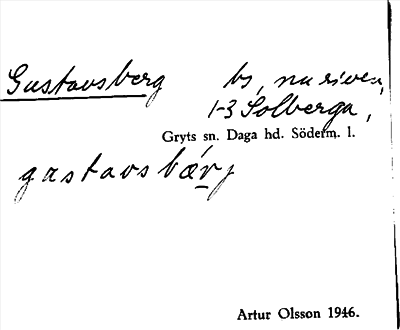 Gustavsberg bs, nu riven,
1-3 Solberga,
Gryts sn. Daga hd. Söderm. l.
gastavsbærj
Artur Olsson 1946.